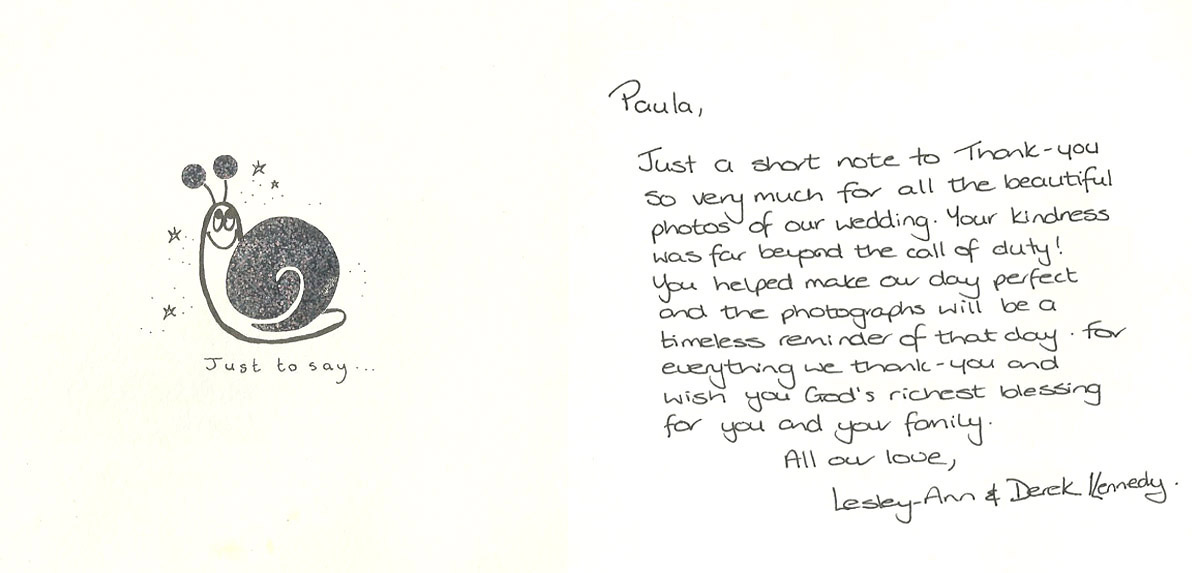 Just to say...
Paula,
Just a short note to Thank-you
so very much for all the beautiful
photos of our wedding. Your kindness
was far beyond the call of duty!
You helped make our day perfect
and the photographs will be a
timeless reminder of that day. For
everything we thank-you and
wish you God's richest blessing
for you and your family.
All our love,
Lesley-Ann & Derek Kennedy.